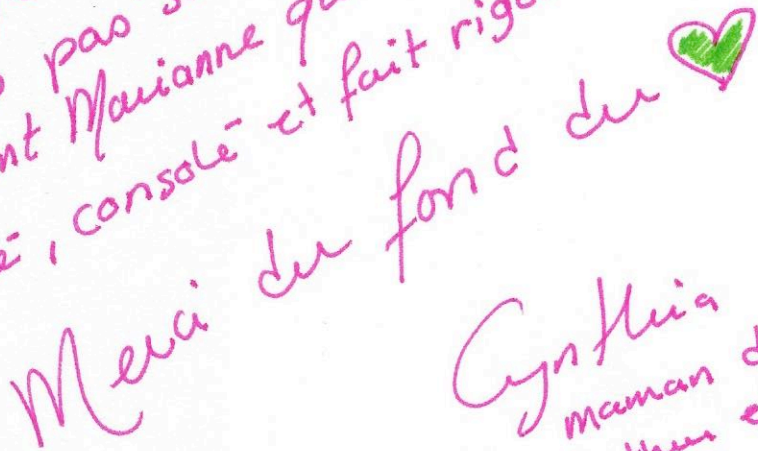 pas
nt Marianne
é, consolé et fait
Merci du fond du
Cynthia
maman